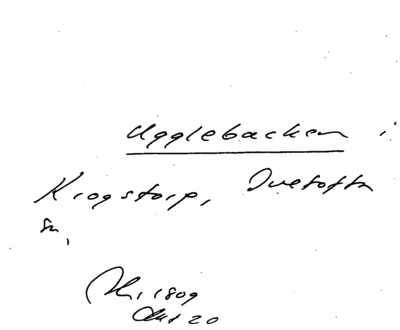 Ugglebacken i
Krogstorp, Duetofta
sn,
1809
Akt 20